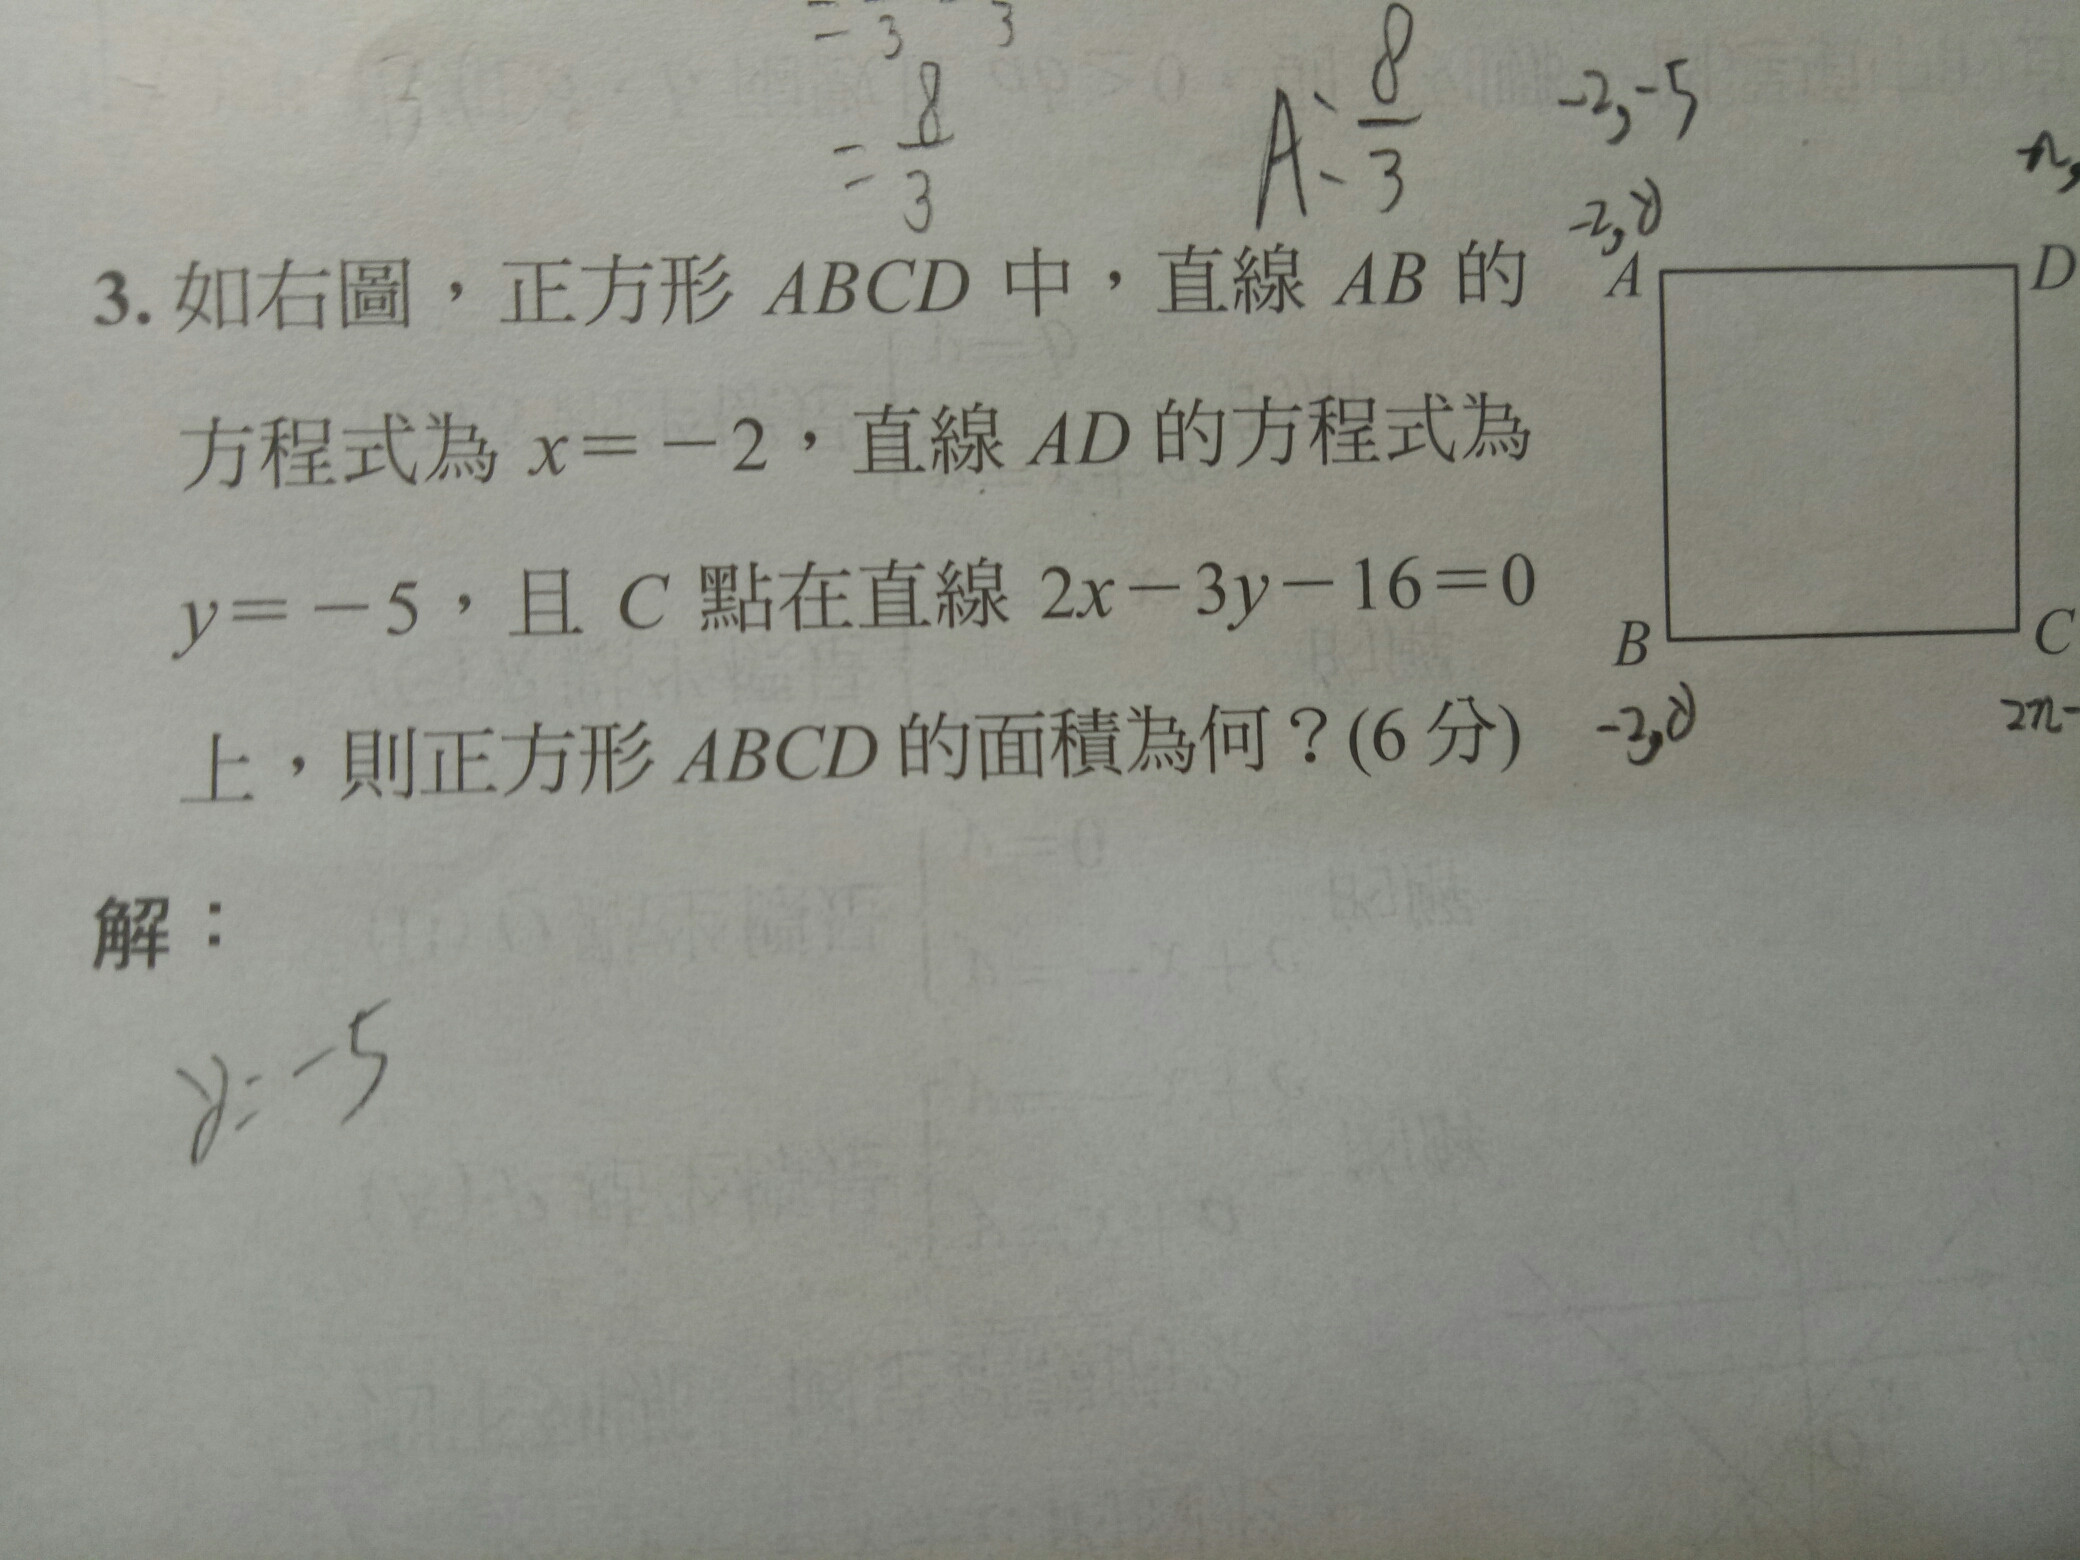 = 8/3
A: 8/3
-2,-5
-2,y
3. 如右圖，正方形 ABCD 中，直線 AB 的
方程式為 x=-2，直線 AD 的方程式為
y=-5，且 C 點在直線 2x-3y-16=0
上，則正方形 ABCD 的面積為何？(6 分)
A
D
B
C
-2,y
解：
y=-5